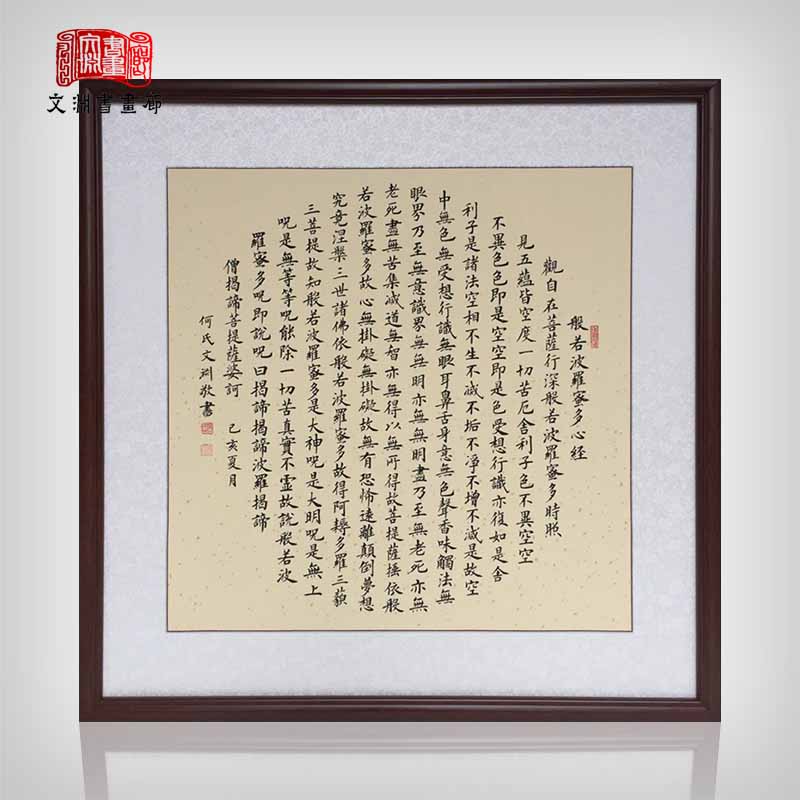 文渊書畫廊
般若波羅蜜多心經
觀自在菩薩行深般若波羅蜜多時照
見五蘊皆空度一切苦厄舍利子色不異空空
不異色色即是空空即是色受想行識亦復如是舍
利子是諸法空相不生不滅不垢不净不增不減是故空
中無色無受想行識無眼耳鼻舌身意無色聲香味觸法無
眼界乃至無意識界無無明亦無無明盡乃至無老死亦無
老死盡無苦集滅道無智亦無得以無所得故菩提薩埵依般
若波羅蜜多故心無掛礙無掛礙故無有恐怖遠離顛倒夢想
究竟涅槃三世諸佛依般若波羅蜜多故得阿耨多羅三藐
三菩提故知般若波羅蜜多是大神呪是大明呪是無上
呪是無等等呪能除一切苦真實不虛故說般若波
羅蜜多呪即說呪曰揭諦揭諦波羅揭諦
僧揭諦菩提薩婆訶 己亥夏月
何氏文渊敬書